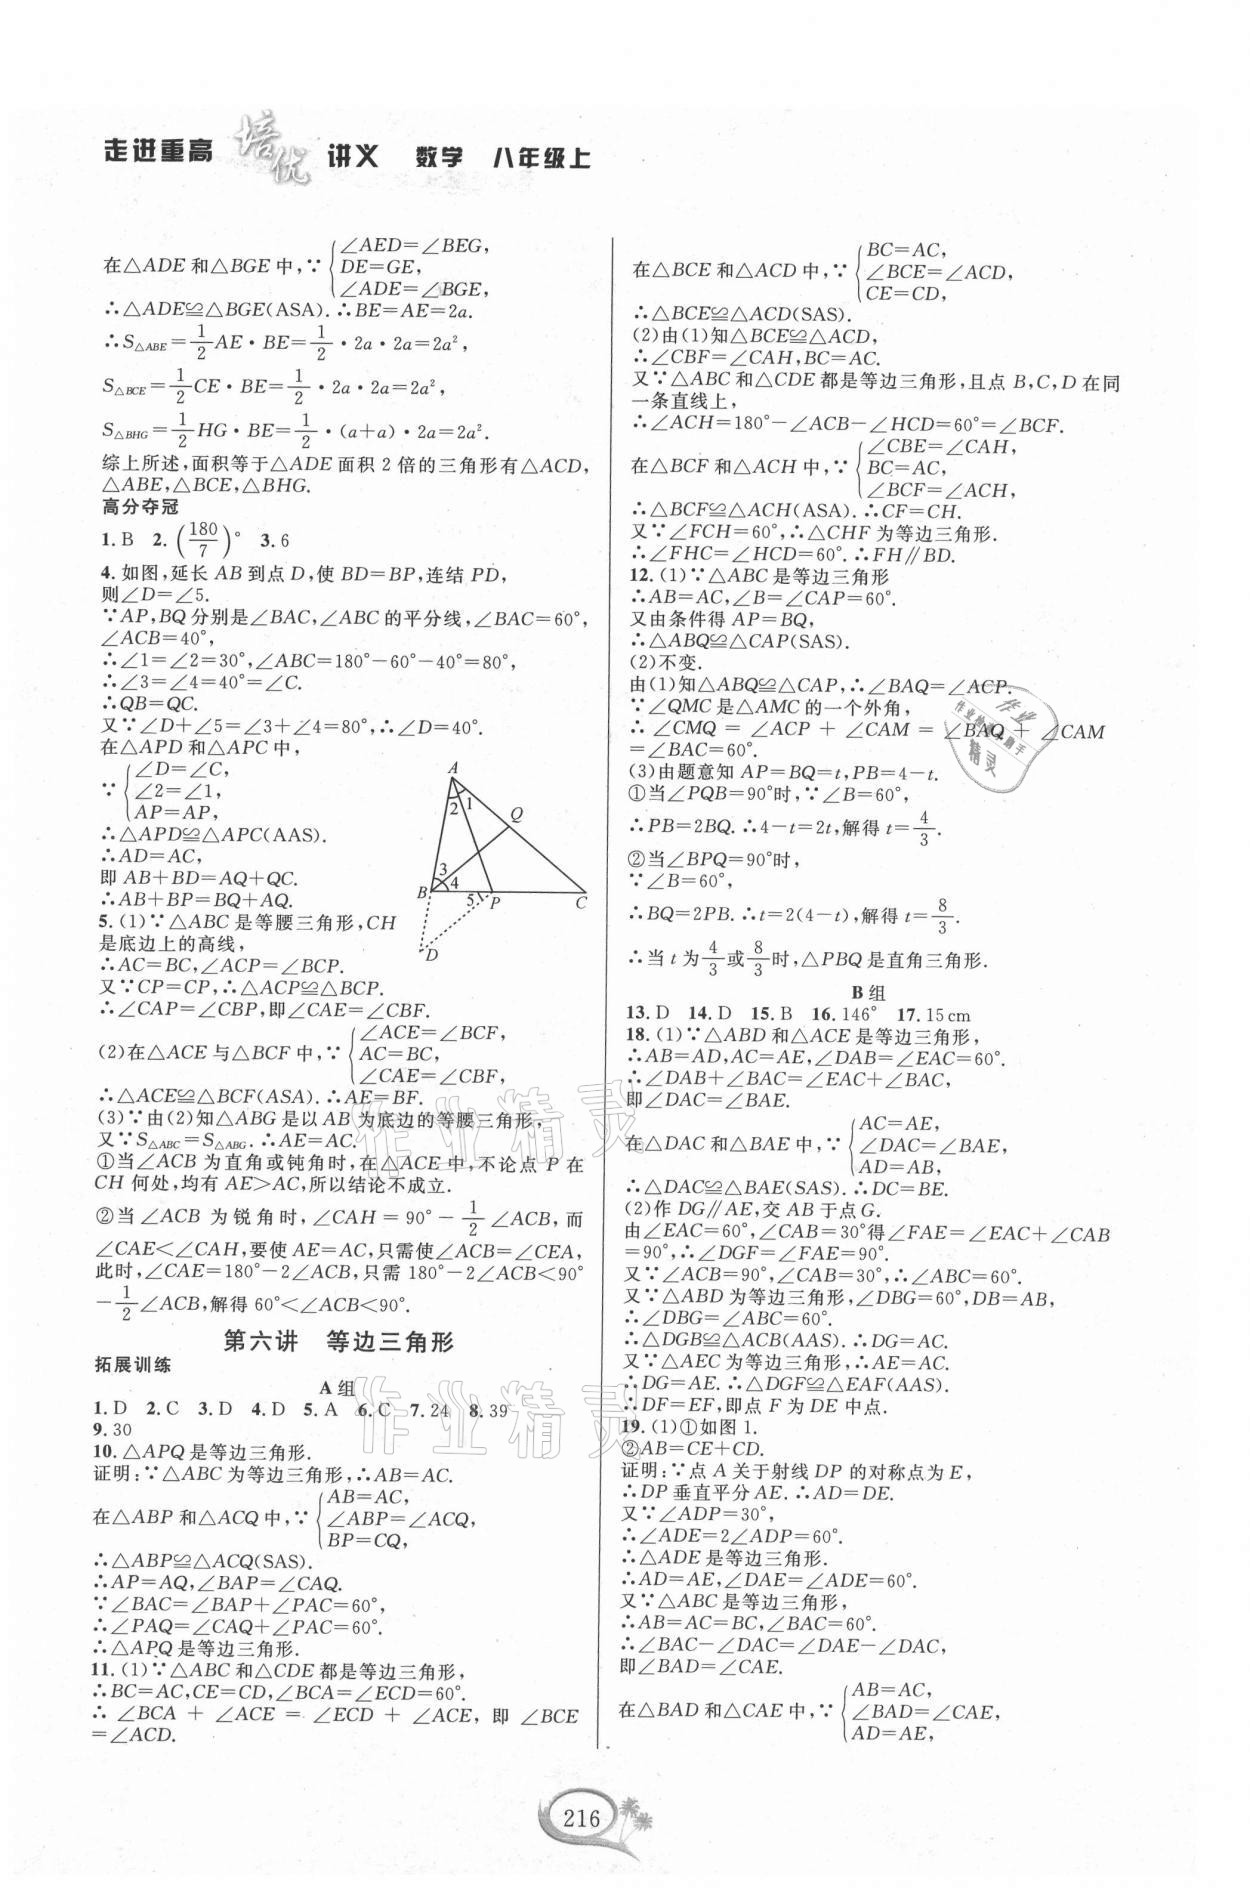 走进重高 培优 讲义 数学 八年级上
在△ADE 和△BGE 中,∵{∠AED=∠BEG,
DE=GE,
∠ADE=∠BGE,
∴△ADE≌△BGE(ASA).∴BE=AE=2a.
∴S△ABE=1/2AE·BE=1/2·2a·2a=2a²,
S△BCE=1/2CE·BE=1/2·2a·2a=2a²,
S△BHG=1/2HG·BE=1/2·(a+a)·2a=2a².
综上所述,面积等于△ADE 面积 2 倍的三角形有△ACD,
△ABE,△BCE,△BHG.
高分夺冠
1. B 2. (180/7)° 3. 6
4. 如图,延长 AB 到点 D,使 BD=BP,连结 PD,
则∠D=∠5.
∵AP,BQ 分别是∠BAC,∠ABC 的平分线,∠BAC=60°,
∠ACB=40°,
∴∠1=∠2=30°,∠ABC=180°-60°-40°=80°,
∴∠3=∠4=40°=∠C.
∴QB=QC.
又∵∠D+∠5=∠3+∠4=80°,∴∠D=40°.
在△APD 和△APC 中,
∵{∠D=∠C,
∠2=∠1,
AP=AP,
∴△APD≌△APC(AAS).
∴AD=AC,
即 AB+BD=AQ+QC.
∴AB+BP=BQ+AQ.
A
2 1
Q
3
4
B 5 P C
D
5. (1)∵△ABC 是等腰三角形,CH
是底边上的高线,
∴AC=BC,∠ACP=∠BCP.
又∵CP=CP,∴△ACP≌△BCP.
∴∠CAP=∠CBP,即∠CAE=∠CBF.
(2)在△ACE 与△BCF 中,∵{∠ACE=∠BCF,
AC=BC,
∠CAE=∠CBF,
∴△ACE≌△BCF(ASA).∴AE=BF.
(3)∵由(2)知△ABG 是以 AB 为底边的等腰三角形,
又∵S△ABC=S△ABG.∴AE=AC.
①当∠ACB 为直角或钝角时,在△ACE 中,不论点 P 在
CH 何处,均有 AE>AC,所以结论不成立.
②当∠ACB 为锐角时,∠CAH=90°-1/2∠ACB,而
∠CAE<∠CAH,要使 AE=AC,只需使∠ACB=∠CEA,
此时,∠CAE=180°-2∠ACB,只需 180°-2∠ACB<90°
-1/2∠ACB,解得 60°<∠ACB<90°.
第六讲 等边三角形
拓展训练
A 组
1. D 2. C 3. D 4. D 5. A 6. C 7. 24 8. 39
9. 30
10. △APQ 是等边三角形.
证明:∵△ABC 为等边三角形,∴AB=AC.
在△ABP 和△ACQ 中,∵{AB=AC,
∠ABP=∠ACQ,
BP=CQ,
∴△ABP≌△ACQ(SAS).
∴AP=AQ,∠BAP=∠CAQ.
∵∠BAC=∠BAP+∠PAC=60°,
∴∠PAQ=∠CAQ+∠PAC=60°.
∴△APQ 是等边三角形.
11. (1)∵△ABC 和△CDE 都是等边三角形,
∴BC=AC,CE=CD,∠BCA=∠ECD=60°.
∴∠BCA+∠ACE=∠ECD+∠ACE,即∠BCE
=∠ACD.
在△BCE 和△ACD 中,∵{BC=AC,
∠BCE=∠ACD,
CE=CD,
∴△BCE≌△ACD(SAS).
(2)由(1)知△BCE≌△ACD,
∴∠CBF=∠CAH,BC=AC.
又∵△ABC 和△CDE 都是等边三角形,且点 B,C,D 在同
一条直线上,
∴∠ACH=180°-∠ACB-∠HCD=60°=∠BCF.
在△BCF 和△ACH 中,∵{∠CBE=∠CAH,
BC=AC,
∠BCF=∠ACH,
∴△BCF≌△ACH(ASA).∴CF=CH.
又∵∠FCH=60°,∴△CHF 为等边三角形.
∴∠FHC=∠HCD=60°.∴FH∥BD.
12. (1)∵△ABC 是等边三角形
∴AB=AC,∠B=∠CAP=60°.
又由条件得 AP=BQ,
∴△ABQ≌△CAP(SAS).
(2)不变.
由(1)知△ABQ≌△CAP,∴∠BAQ=∠ACP.
∵∠QMC 是△AMC 的一个外角,
∴∠CMQ=∠ACP+∠CAM=∠BAQ+∠CAM
=∠BAC=60°.
(3)由题意知 AP=BQ=t,PB=4-t.
①当∠PQB=90°时,∵∠B=60°,
∴PB=2BQ.∴4-t=2t,解得 t=4/3.
②当∠BPQ=90°时,
∵∠B=60°,
∴BQ=2PB.∴t=2(4-t),解得 t=8/3.
∴当 t 为4/3或8/3时,△PBQ 是直角三角形.
B 组
13. D 14. D 15. B 16. 146° 17. 15 cm
18. (1)∵△ABD 和△ACE 是等边三角形,
∴AB=AD,AC=AE,∠DAB=∠EAC=60°.
∴∠DAB+∠BAC=∠EAC+∠BAC,
即∠DAC=∠BAE.
在△DAC 和△BAE 中,∵{AC=AE,
∠DAC=∠BAE,
AD=AB,
∴△DAC≌△BAE(SAS).∴DC=BE.
(2)作 DG∥AE,交 AB 于点 G.
由∠EAC=60°,∠CAB=30°得∠FAE=∠EAC+∠CAB
=90°,∴∠DGF=∠FAE=90°.
又∵∠ACB=90°,∠CAB=30°,∴∠ABC=60°.
又∵△ABD 为等边三角形,∠DBG=60°,DB=AB,
∴∠DBG=∠ABC=60°.
∴△DGB≌△ACB(AAS).∴DG=AC.
又∵△AEC 为等边三角形,∴AE=AC.
∴DG=AE.∴△DGF≌△EAF(AAS).
∴DF=EF,即点 F 为 DE 中点.
19. (1)①如图 1.
②AB=CE+CD.
证明:∵点 A 关于射线 DP 的对称点为 E,
∴DP 垂直平分 AE.∴AD=DE.
又∵∠ADP=30°,
∴∠ADE=2∠ADP=60°.
∴△ADE 是等边三角形.
∴AD=AE,∠DAE=∠ADE=60°.
又∵△ABC 是等边三角形,
∴AB=AC=BC,∠BAC=60°.
∴∠BAC-∠DAC=∠DAE-∠DAC,
即∠BAD=∠CAE.
在△BAD 和△CAE 中,∵{AB=AC,
∠BAD=∠CAE,
AD=AE,
216
作业精灵
作业精灵